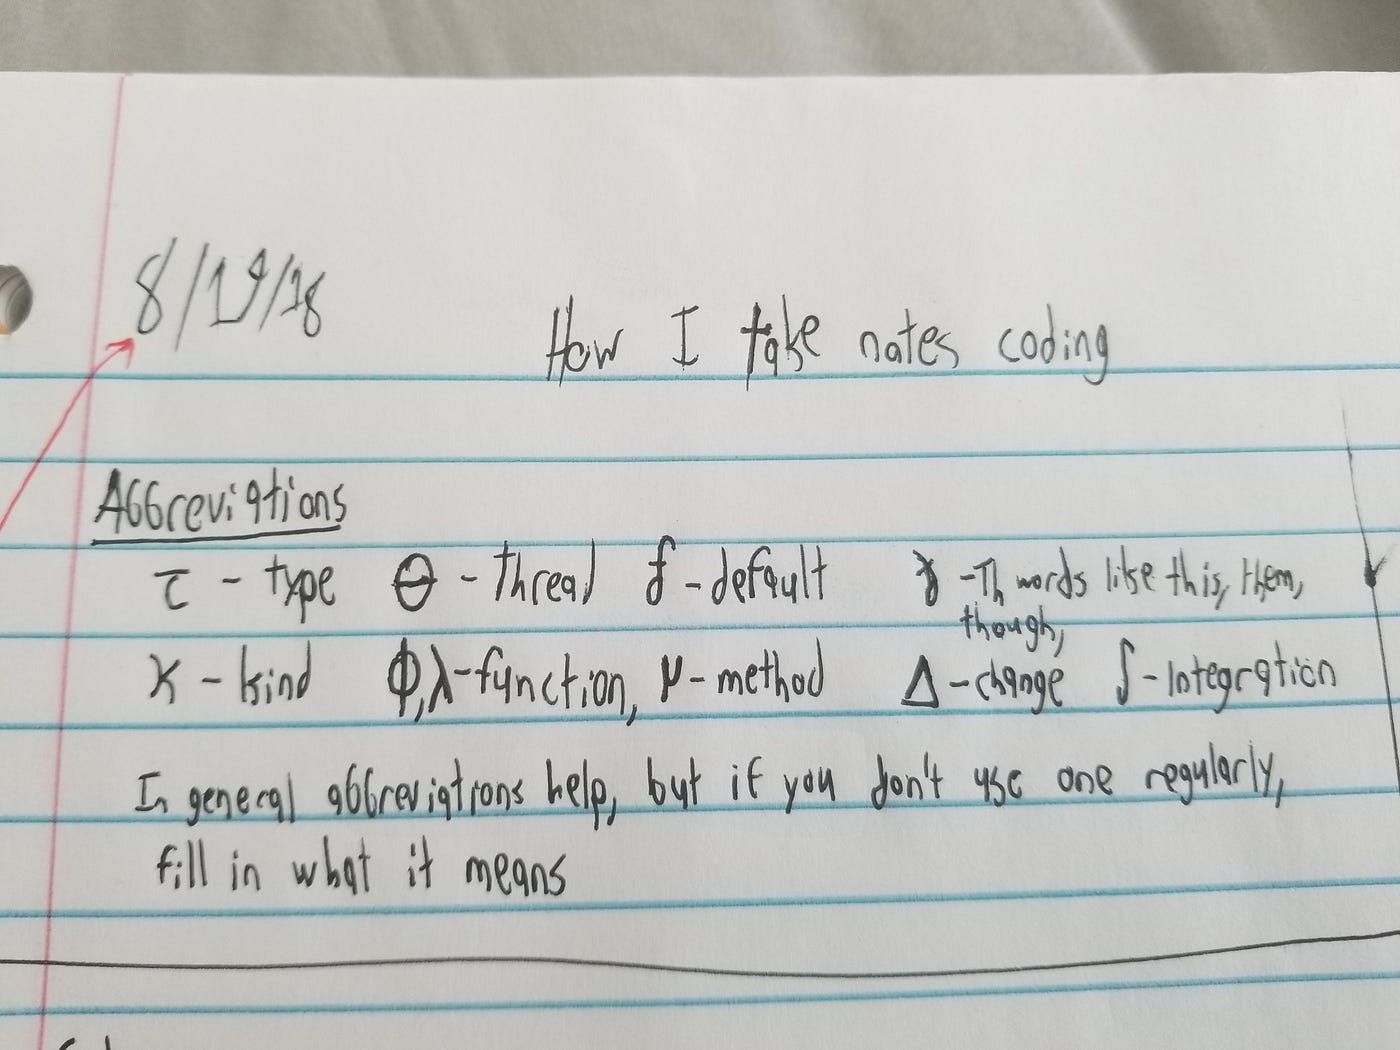 8/19/18
How I take notes coding
Abbreviations
τ - type θ - thread f - default ɣ - Th words like this, them,
though,
κ - kind Φ, λ - function, μ - method Δ - change ∫ - Integration
In general abbreviations help, but if you don't use one regularly,
fill in what it means